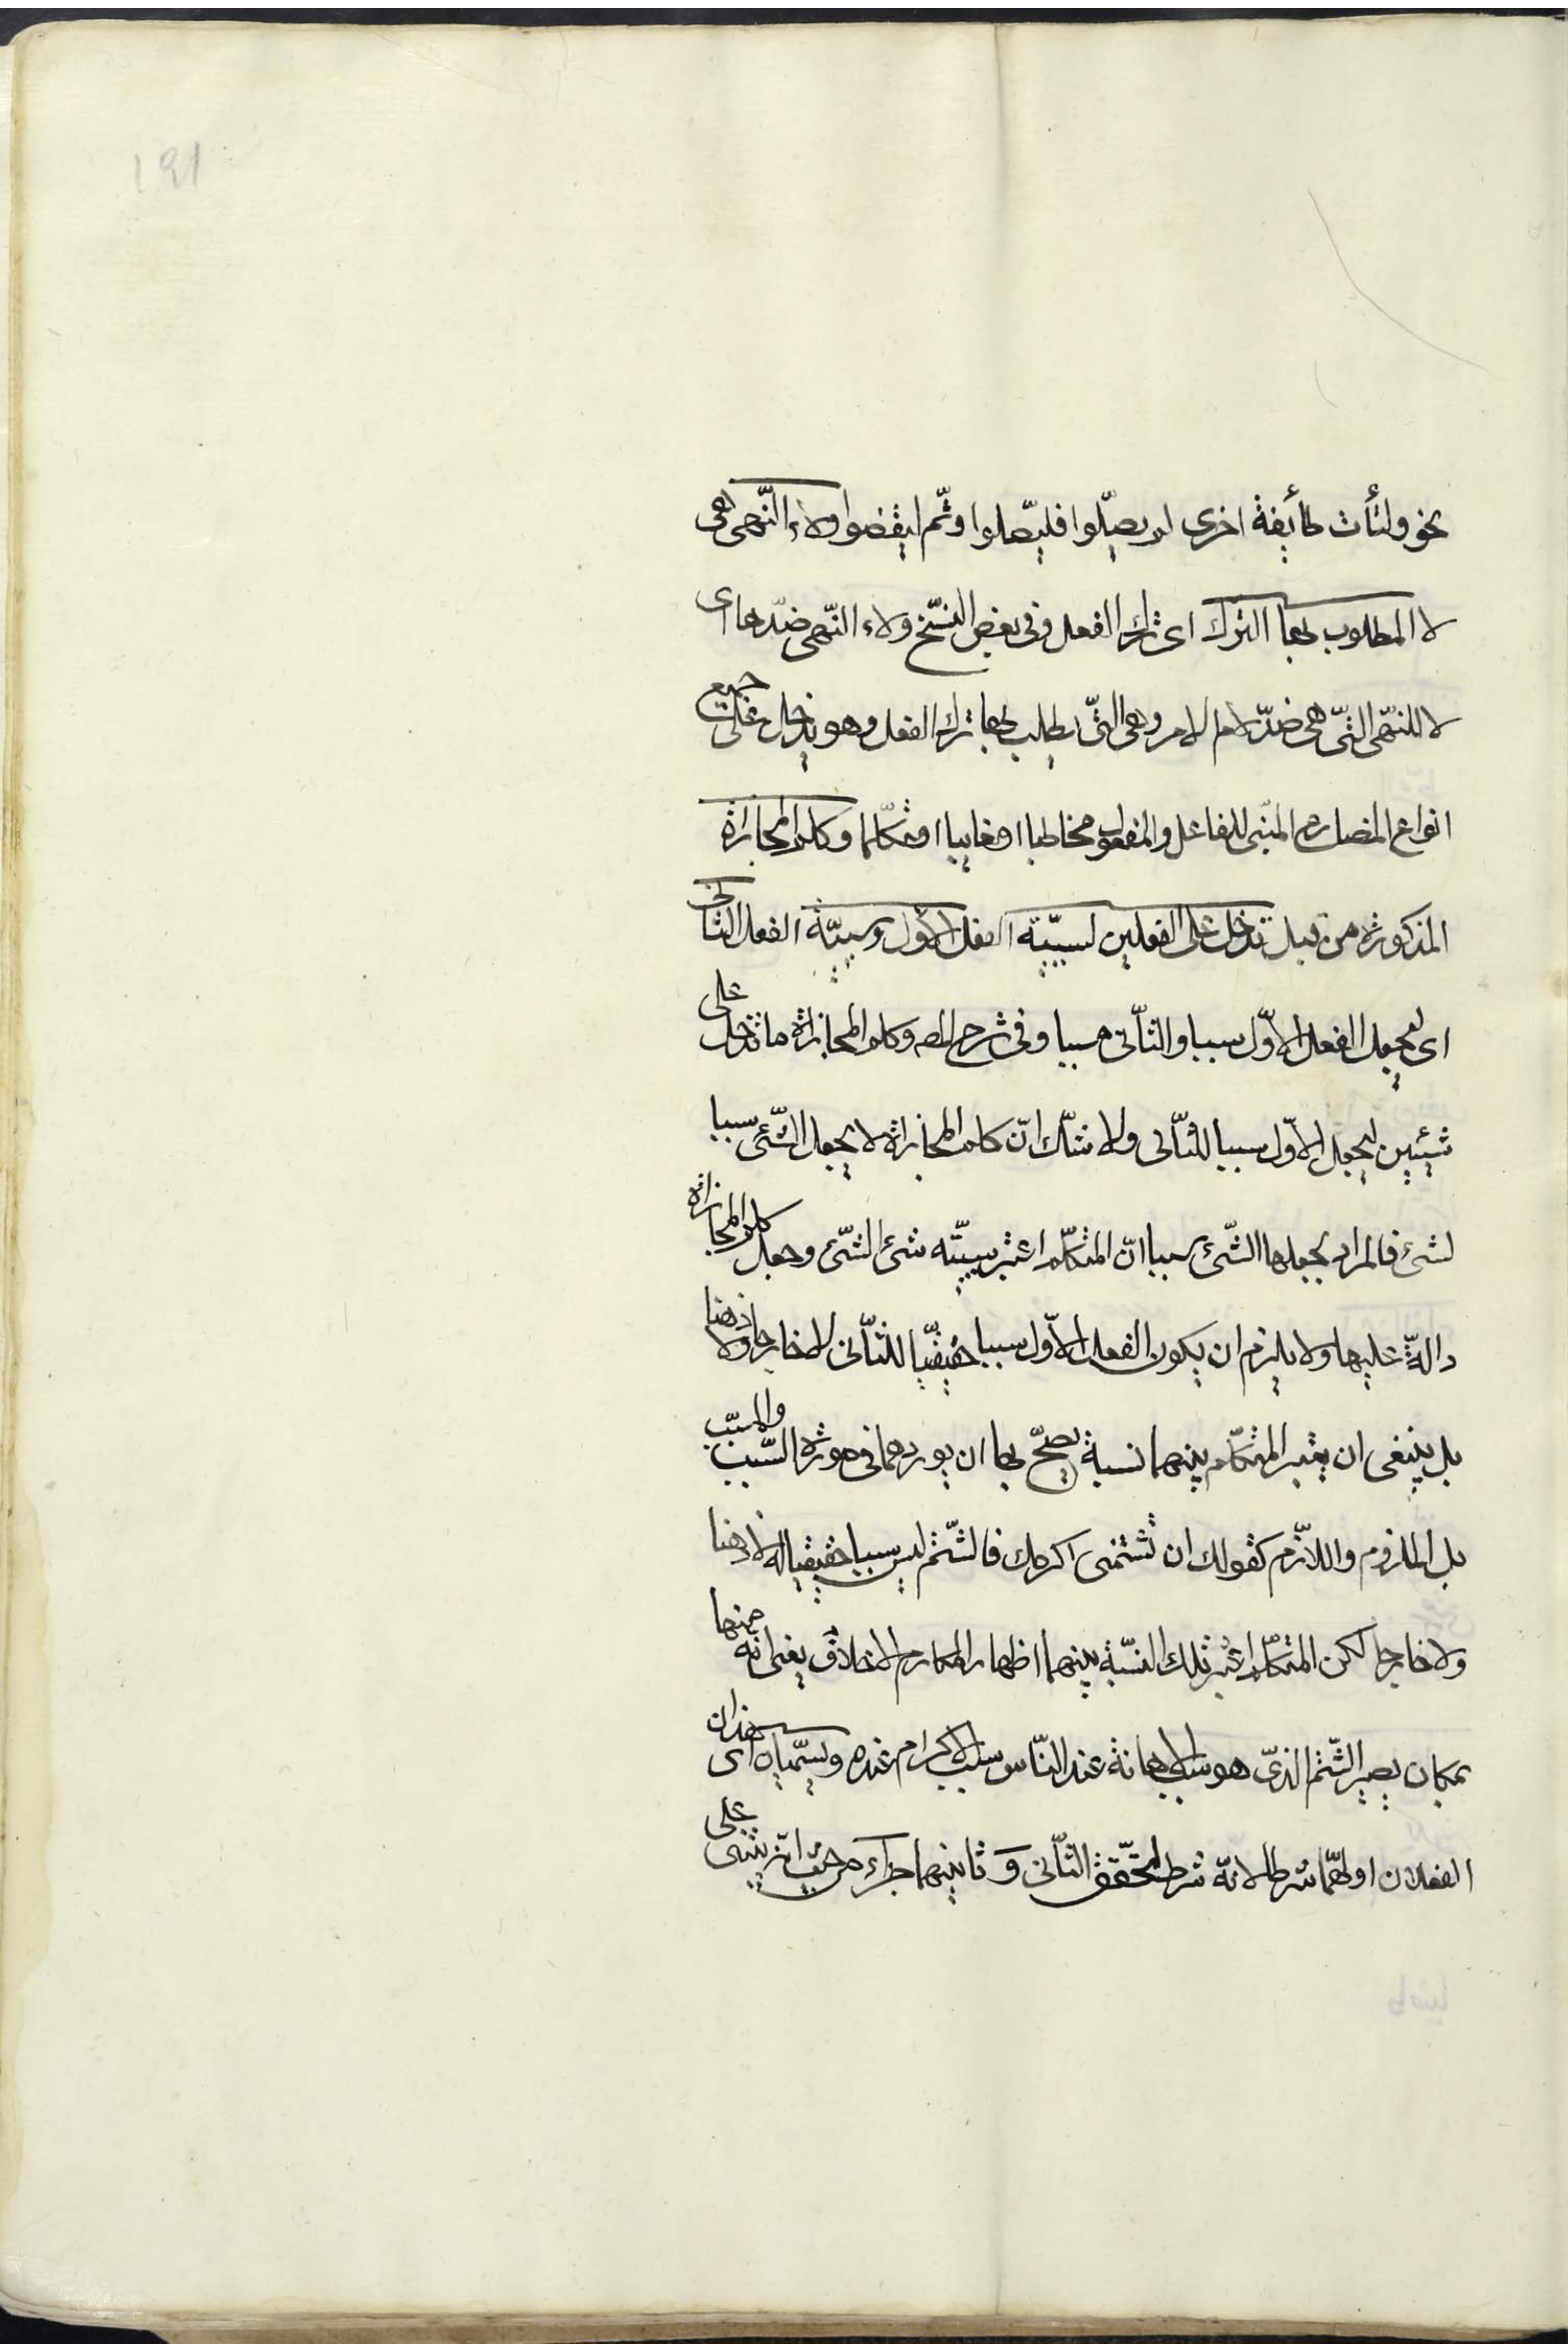 ١٩١
نحو ولتأت طائفة اخرى لم يصلّوا فليصّلوا وثّم ليقضوا ولاء النّهى هى
لا المطلوب بها الترك اى ترك الفعل وفى بعض النسّخ ولاء النّهى ضدّها اى
لا للنهّى التّى هى ضدّ لام الامر وهى التّى يطلب بها ترك الفعل وهو يدخل على جميع
انواع المضارع المبنى للفاعل والمفعول مخاطبا او غايبا او متكلّما وكلم المجازاة
المذكورة من قبل تدخل على الفعلين لسببيّة الفعل الاوّل ومسببيّة الفعل الثانى
اى لجعل الفعل الاوّل سببا والثاّنى مسببا وفى شرح المصـ وكلم المجازاة ما تدخل على
شيئين لجعل الاوّل سببا للثاّنى ولا شكّ انّ كلم المجازاة لا يجعل الشّئ سببا
لشئ فالمراد بجعلها الشّئ سببا انّ المتكلّم اعتبر سببيّته شئ الشّئ وجعل كلم المجازاة
دالّة عليها ولا يلزم ان يكون الفعل الاوّل سببا حقيقيّا للثاّنى لا خارجا ولا ذهنا
بل ينبغى ان يعتبر المتكلّم بينهما نسبة يصحّ بها ان يوردهما فى صورة السّبب والمسبّب
بل الملزوم واللاّزم كقولك ان تشتمنى اكرمك فالشّتم ليس سببا حقيقيا له لا ذهنا
ولا خارجا لكن المتكلّم اعتبر تلك النسّبة بينهما اظهار المكارم الاخلاق يعنى انّه منها
بمكان يصير الشّتم الذىّ هو سبب الاهانة عند النّاس سبب الاكرام عنده ويسمّيان اى هذان
الفعلان اولهمّا شرطا لانّه شرط لتحقّق الثاّنى وَ ثانيهما جزاء من حيث انّه يبتنى على